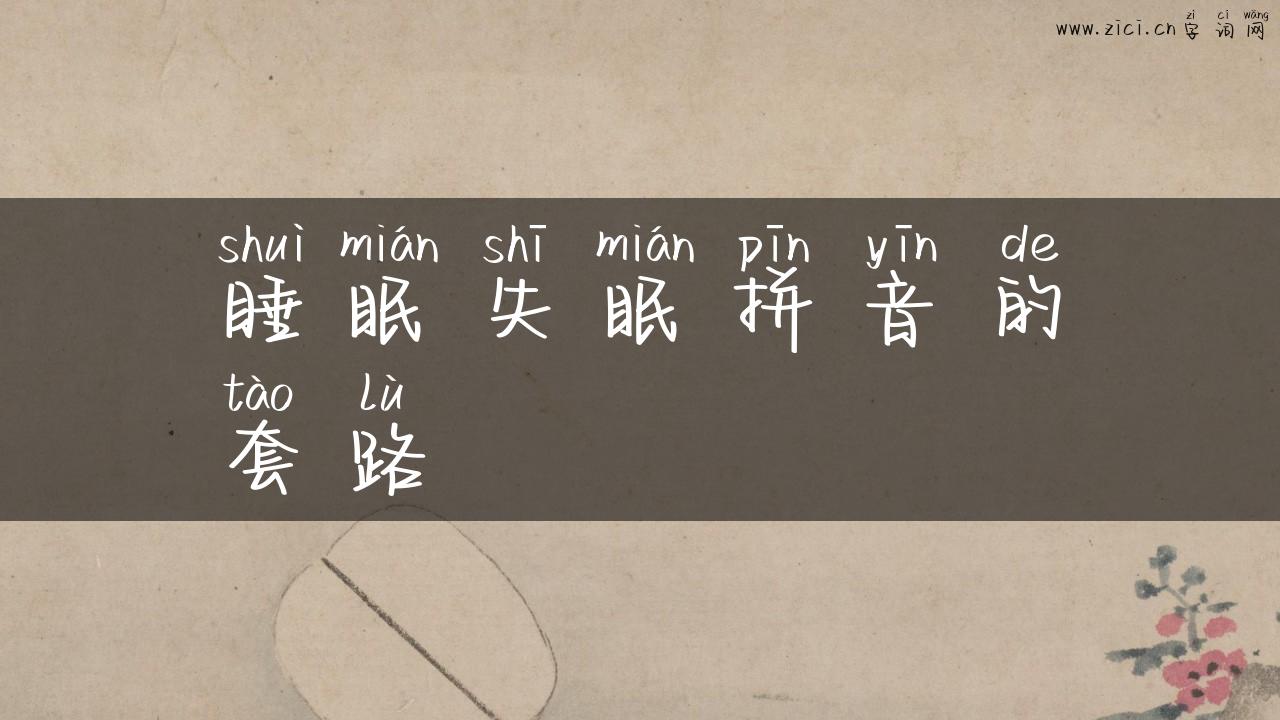 zì cí wǎng
www.zici.cn 字 词 网
shuì mián shī mián pīn yīn de
睡 眠 失 眠 拼 音 的
tào lù
套 路